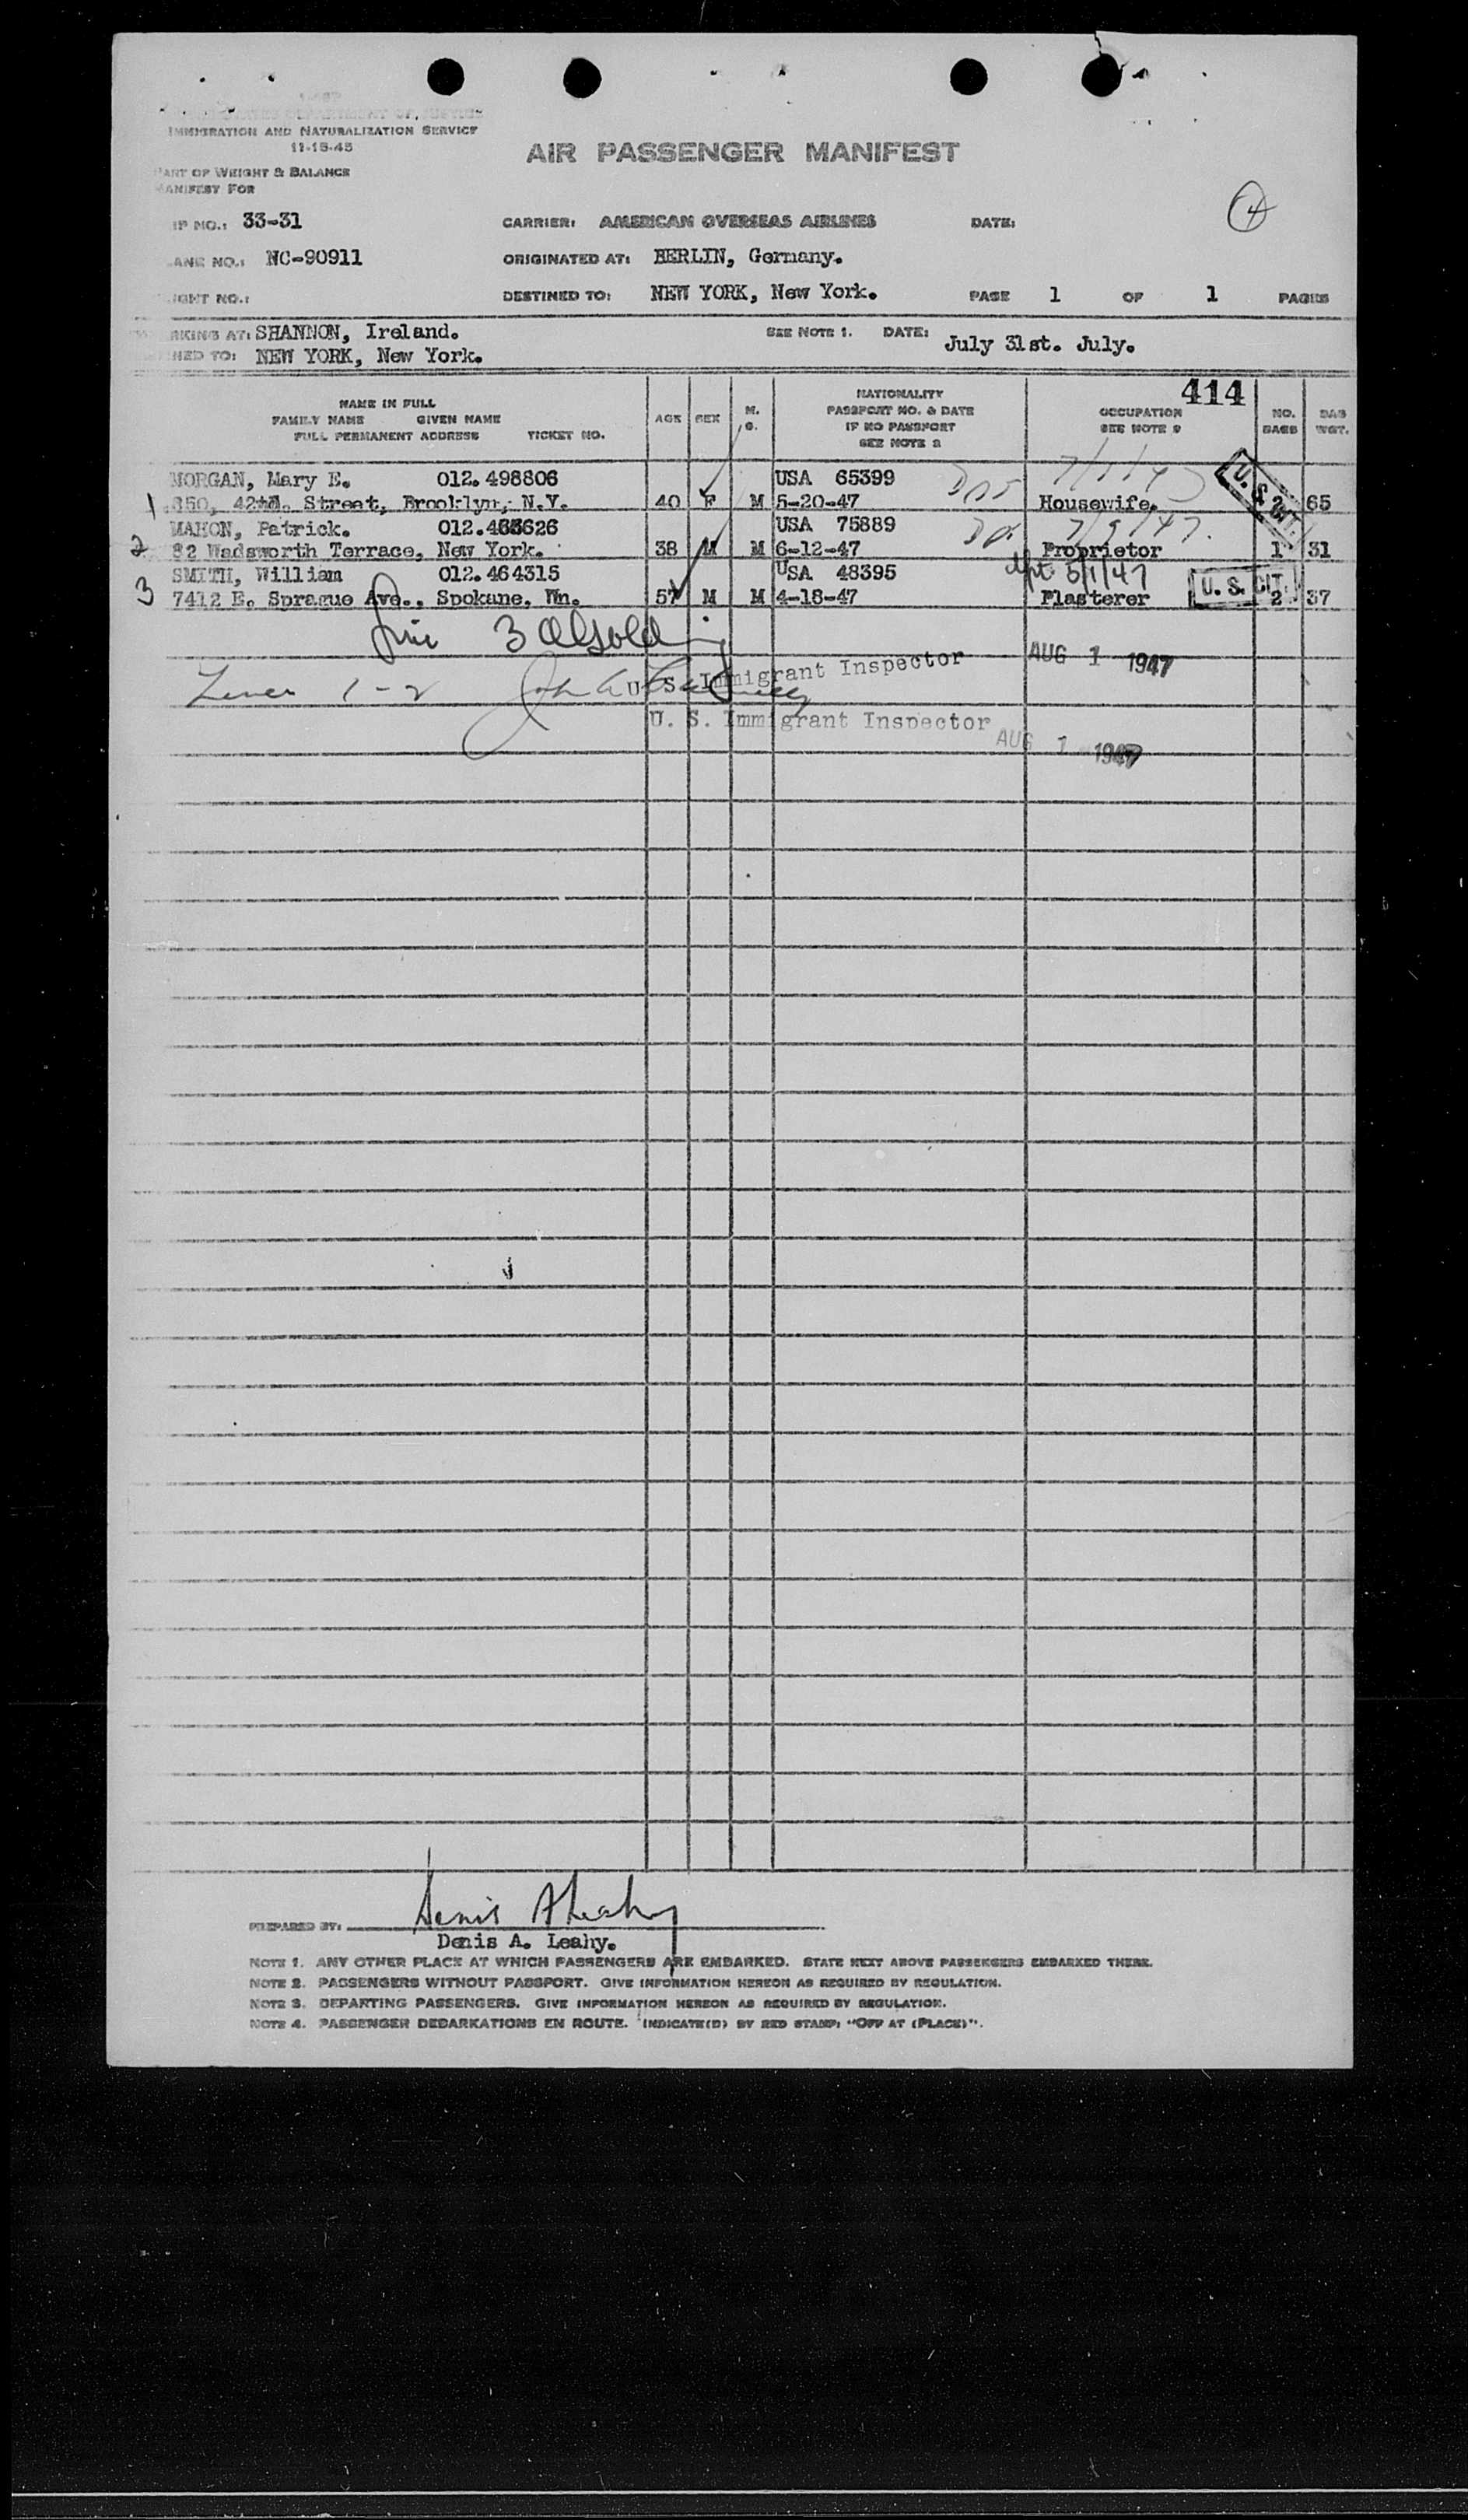 IMMIGRATION AND NATURALIZATION SERVICE
11-15-45
AIR PASSENGER MANIFEST
PART OF WEIGHT & BALANCE
MANIFEST FOR
4
IP NO.: 33-31 CARRIER: AMERICAN OVERSEAS AIRLINES DATE:
LANE NO.: NC-90911 ORIGINATED AT: BERLIN, Germany.
IGHT NO.: DESTINED TO: NEW YORK, New York. PAGE 1 OF 1 PAGES
RKING AT: SHANNON, Ireland. SEE NOTE 1. DATE: July 31st. July.
NED TO: NEW YORK, New York.
414
NAME IN FULL
FAMILY NAME GIVEN NAME
FULL PERMANENT ADDRESS TICKET NO.
AGE SEX M. S.
NATIONALITY
PASSPORT NO. & DATE
IF NO PASSPORT
SEE NOTE 2
OCCUPATION
SEE NOTE 3
NO. BAGS
BAG WGT.
MORGAN, Mary E. 012.498806 USA 65399 7/1/47 U. S. CIT.
1 350, 42nd. Street, Brooklyn, N.Y. 40 F M 5-20-47 Housewife. 2 65
MAHON, Patrick. 012.463626 USA 75889 7/9/47.
2 82 Wadsworth Terrace, New York. 38 M M 6-12-47 Proprietor 1 31
SMITH, William 012.464315 USA 48395 5/1/47
3 7412 E. Sprague Ave., Spokane, Wn. 57 M M 4-18-47 Plasterer U. S. CIT. 2 37
U. S. Immigrant Inspector AUG 1 1947
1-2
U. S. Immigrant Inspector AUG 1 1947
PREPARED BY: Denis A Leahy
Denis A. Leahy.
NOTE 1. ANY OTHER PLACE AT WHICH PASSENGERS ARE EMBARKED. STATE NEXT ABOVE PASSENGERS EMBARKED THERE.
NOTE 2. PASSENGERS WITHOUT PASSPORT. GIVE INFORMATION HEREON AS REQUIRED BY REGULATION.
NOTE 3. DEPARTING PASSENGERS. GIVE INFORMATION HEREON AS REQUIRED BY REGULATION.
NOTE 4. PASSENGER DEBARKATIONS EN ROUTE. INDICATE(D) BY RED STAMP: "OFF AT (PLACE)".